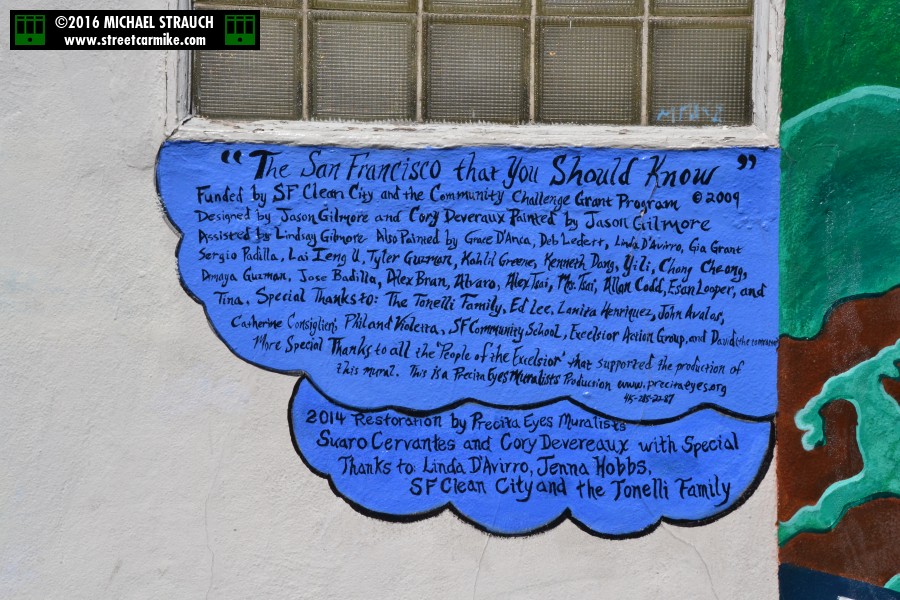 ©2016 MICHAEL STRAUCH
www.streetcarmike.com
"The San Francisco that You Should Know"
Funded by SF Clean City and the Community Challenge Grant Program ©2009
Designed by Jason Gilmore and Cory Deveraux Painted by Jason Gilmore
Assisted by Lindsay Gilmore Also Painted by Grace D'Anca, Deb Ledert, Linda D'Avirro, Gia Grant
Sergio Padilla, Lai Ieng U, Tyler Guzman, Kahlil Greene, Kenneth Dong, Yi Li, Chong Cheong,
Amaya Guzman, Jose Badilla, Alex Bran, Alvaro, Alex Tsai, Ms. Tsai, Allan Codd, Esan Looper, and
Tina. Special Thanks to: The Tonelli Family, Ed Lee, Lanita Henriquez, John Avalos,
Catherine Consiglieri, Phil and Violetta, SF Community School, Excelsior Action Group, and David
More Special Thanks to all the "People of the Excelsior" that supported the production of
this mural. This is a Precita Eyes Muralists Production www.precitaeyes.org
415-285-2287
2014 Restoration by Precita Eyes Muralists
Suaro Cervantes and Cory Devereaux with Special
Thanks to: Linda D'Avirro, Jenna Hobbs,
SF Clean City and the Tonelli Family